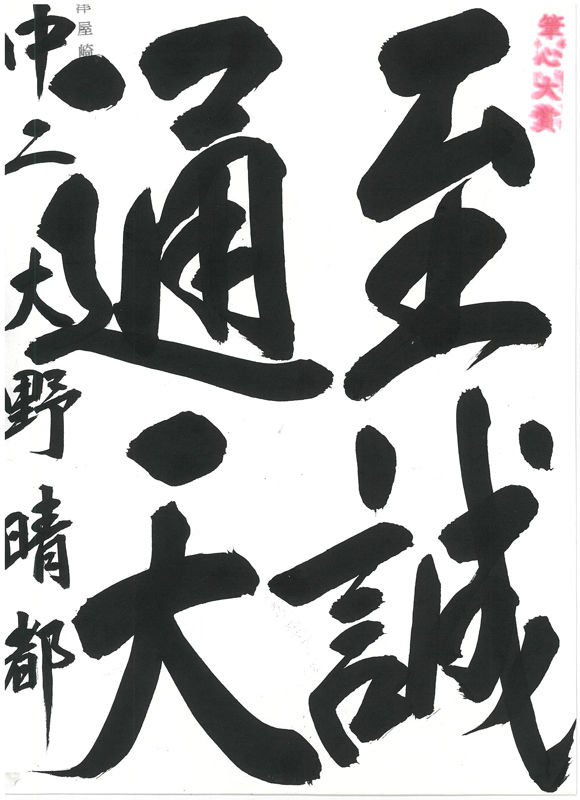 筆心大賞
至誠
通天
津屋崎
中二 大野晴都